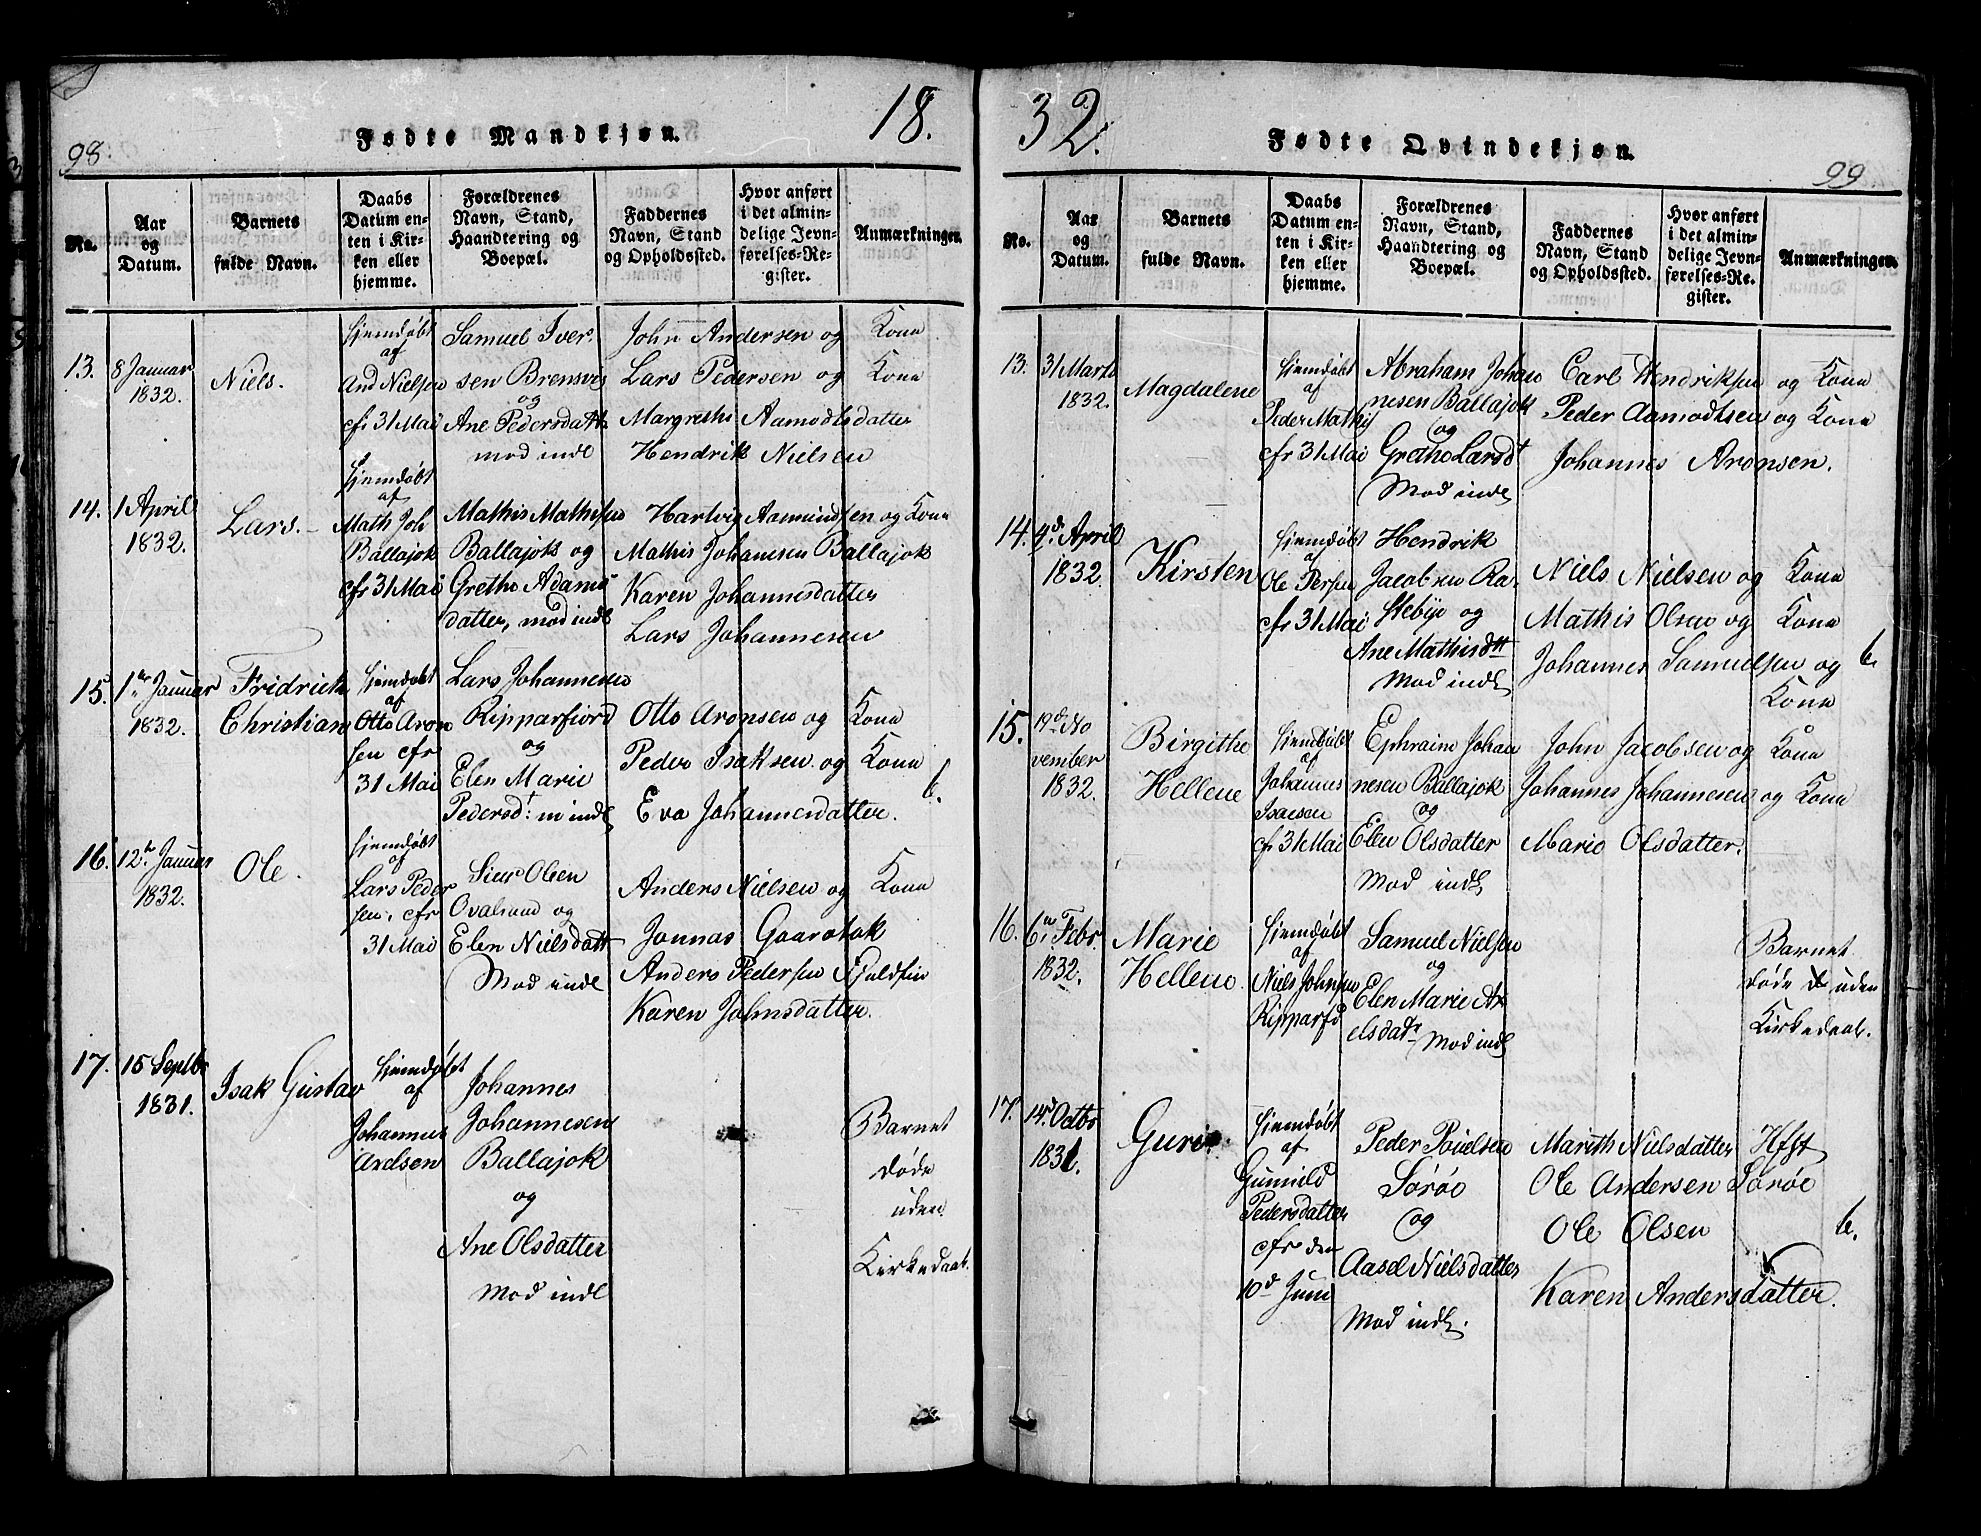 98.
Fødte Mandkjøn.
18.
No.
Aar og Datum.
Barnets fulde Navn.
Daabs Datum enten i Kirken eller hjemme.
Forældrenes Navn, Stand, Haandtering og Boepæl.
Faddernes Navn, Stand og Opholdssted.
Hvor anført i det almindelige Jevnførelses-Register.
Anmærkninger.
13.
8 Januar
1832.
Niels.
hjemdøbt
af
And Nielsen
cfr 31 Mai
Samuel Iver
sen
og
Ane Pedersdatt
mod indl
John Andersen og Kone
Lars Pedersen og Kone
Margrethe Aamodtsdatter
Hendrik Nielsen
14.
1 April
1832.
Lars. -
hjemdøbt
af
Math Joh
Ballajok
cfr 31 Mai
Mathis Mathisen
Ballajok og
Grethe Adams
datter, mod indl
Hartvig Aamundsen og Kone
Mathis Johannesen Ballajok
Karen Johannesdatter
Lars Johannesen
15.
1 Januar
1832.
Fridrich
Christian
hjemdøbt
af
Otto Aron
sen cfr
31 Mai
Lars Johannesen
Ripparfiord
og
Elen Marie
Pedersd: m indl
Otto Aronsen og Kone
Peder Isaksen og Kone
Eva Johannesdatter.
b.
16.
12 Januar
1832.
Ole.
hjemdøbt
af
Lars Peder
sen. cfr
31 Mai
Siur Olsen
Qvalsund og
Elen Nielsdatt
Mod indl
Anders Nielsen og Kone
Jonnas Gaarotok
Anders Pedersen Fjeldfin
Karen Johnsdatter.
17.
15 Septbr
1831.
Isak Gustav
hjemdøbt
af
Johannes
Arelsen
Johannes
Johannesen
Ballajok
og
Ane Olsdatter
Mod indl
Barnet
døde
uden
Kirkedaab.
32.
Fødte Qvindekjøn.
99
No.
Aar og Datum.
Barnets fulde Navn.
Daabs Datum enten i Kirken eller hjemme.
Forældrenes Navn, Stand, Haandtering og Boepæl.
Faddernes Navn, Stand og Opholdssted.
Hvor anført i det almindelige Jevnførelses-Register.
Anmærkninger.
13.
31 Marts
1832.
Magdalene
hjemdøbt
af
Peder Mathis
cfr 31 Mai
Abraham Johan
nesen Ballajok
og
Grethe Larsdt
Mod indl
Carl Hendriksen og Kone
Peder Aamodtsen og Kone
Johannes Aronsen.
14.
April
1832.
Kirsten
hjemdøbt
af
Ole Persen
cfr 31 Mai
Hendrik
Jacobsen Ra-
stebye og
Ane Mathisdtt
Mod indl
Niels Nielsen og Kone
Mathis Olsen og Kone
Johannes Samuelsen og
Kone
b.
15.
19 No
vember
1832.
Birgithe
Hellene
hjemdøbt
af
Johannes
Isacsen
cfr 31 Mai
Ephraim Johan
nesen Ballajok
og
Elen Olsdatter
Mod indl
John Jacobsen og Kone
Johannes Johannesen og Kone
Marie Olsdatter.
16.
6 Febr
1832.
Marie
Hellene.
hjemdøbt
af
Niels Johnsen
Ripparfd
Samuel Nielsen
og
Elen Marie Ar
elsdatr Mod indl
Barnet
døde uden
Kirkedaab.
17.
14 Octbr
1831.
Guri
hjemdøbt
af
Gunnild
Pedersdatter
cfr den
10d Juni
Peder Povelsen
Sørøe
og
Aasel Nielsdatter
Mod indl.
Marith Nielsdatter Hfst
Ole Andersen Sørøe
Ole Olsen
Karen Andersdatter.
b.